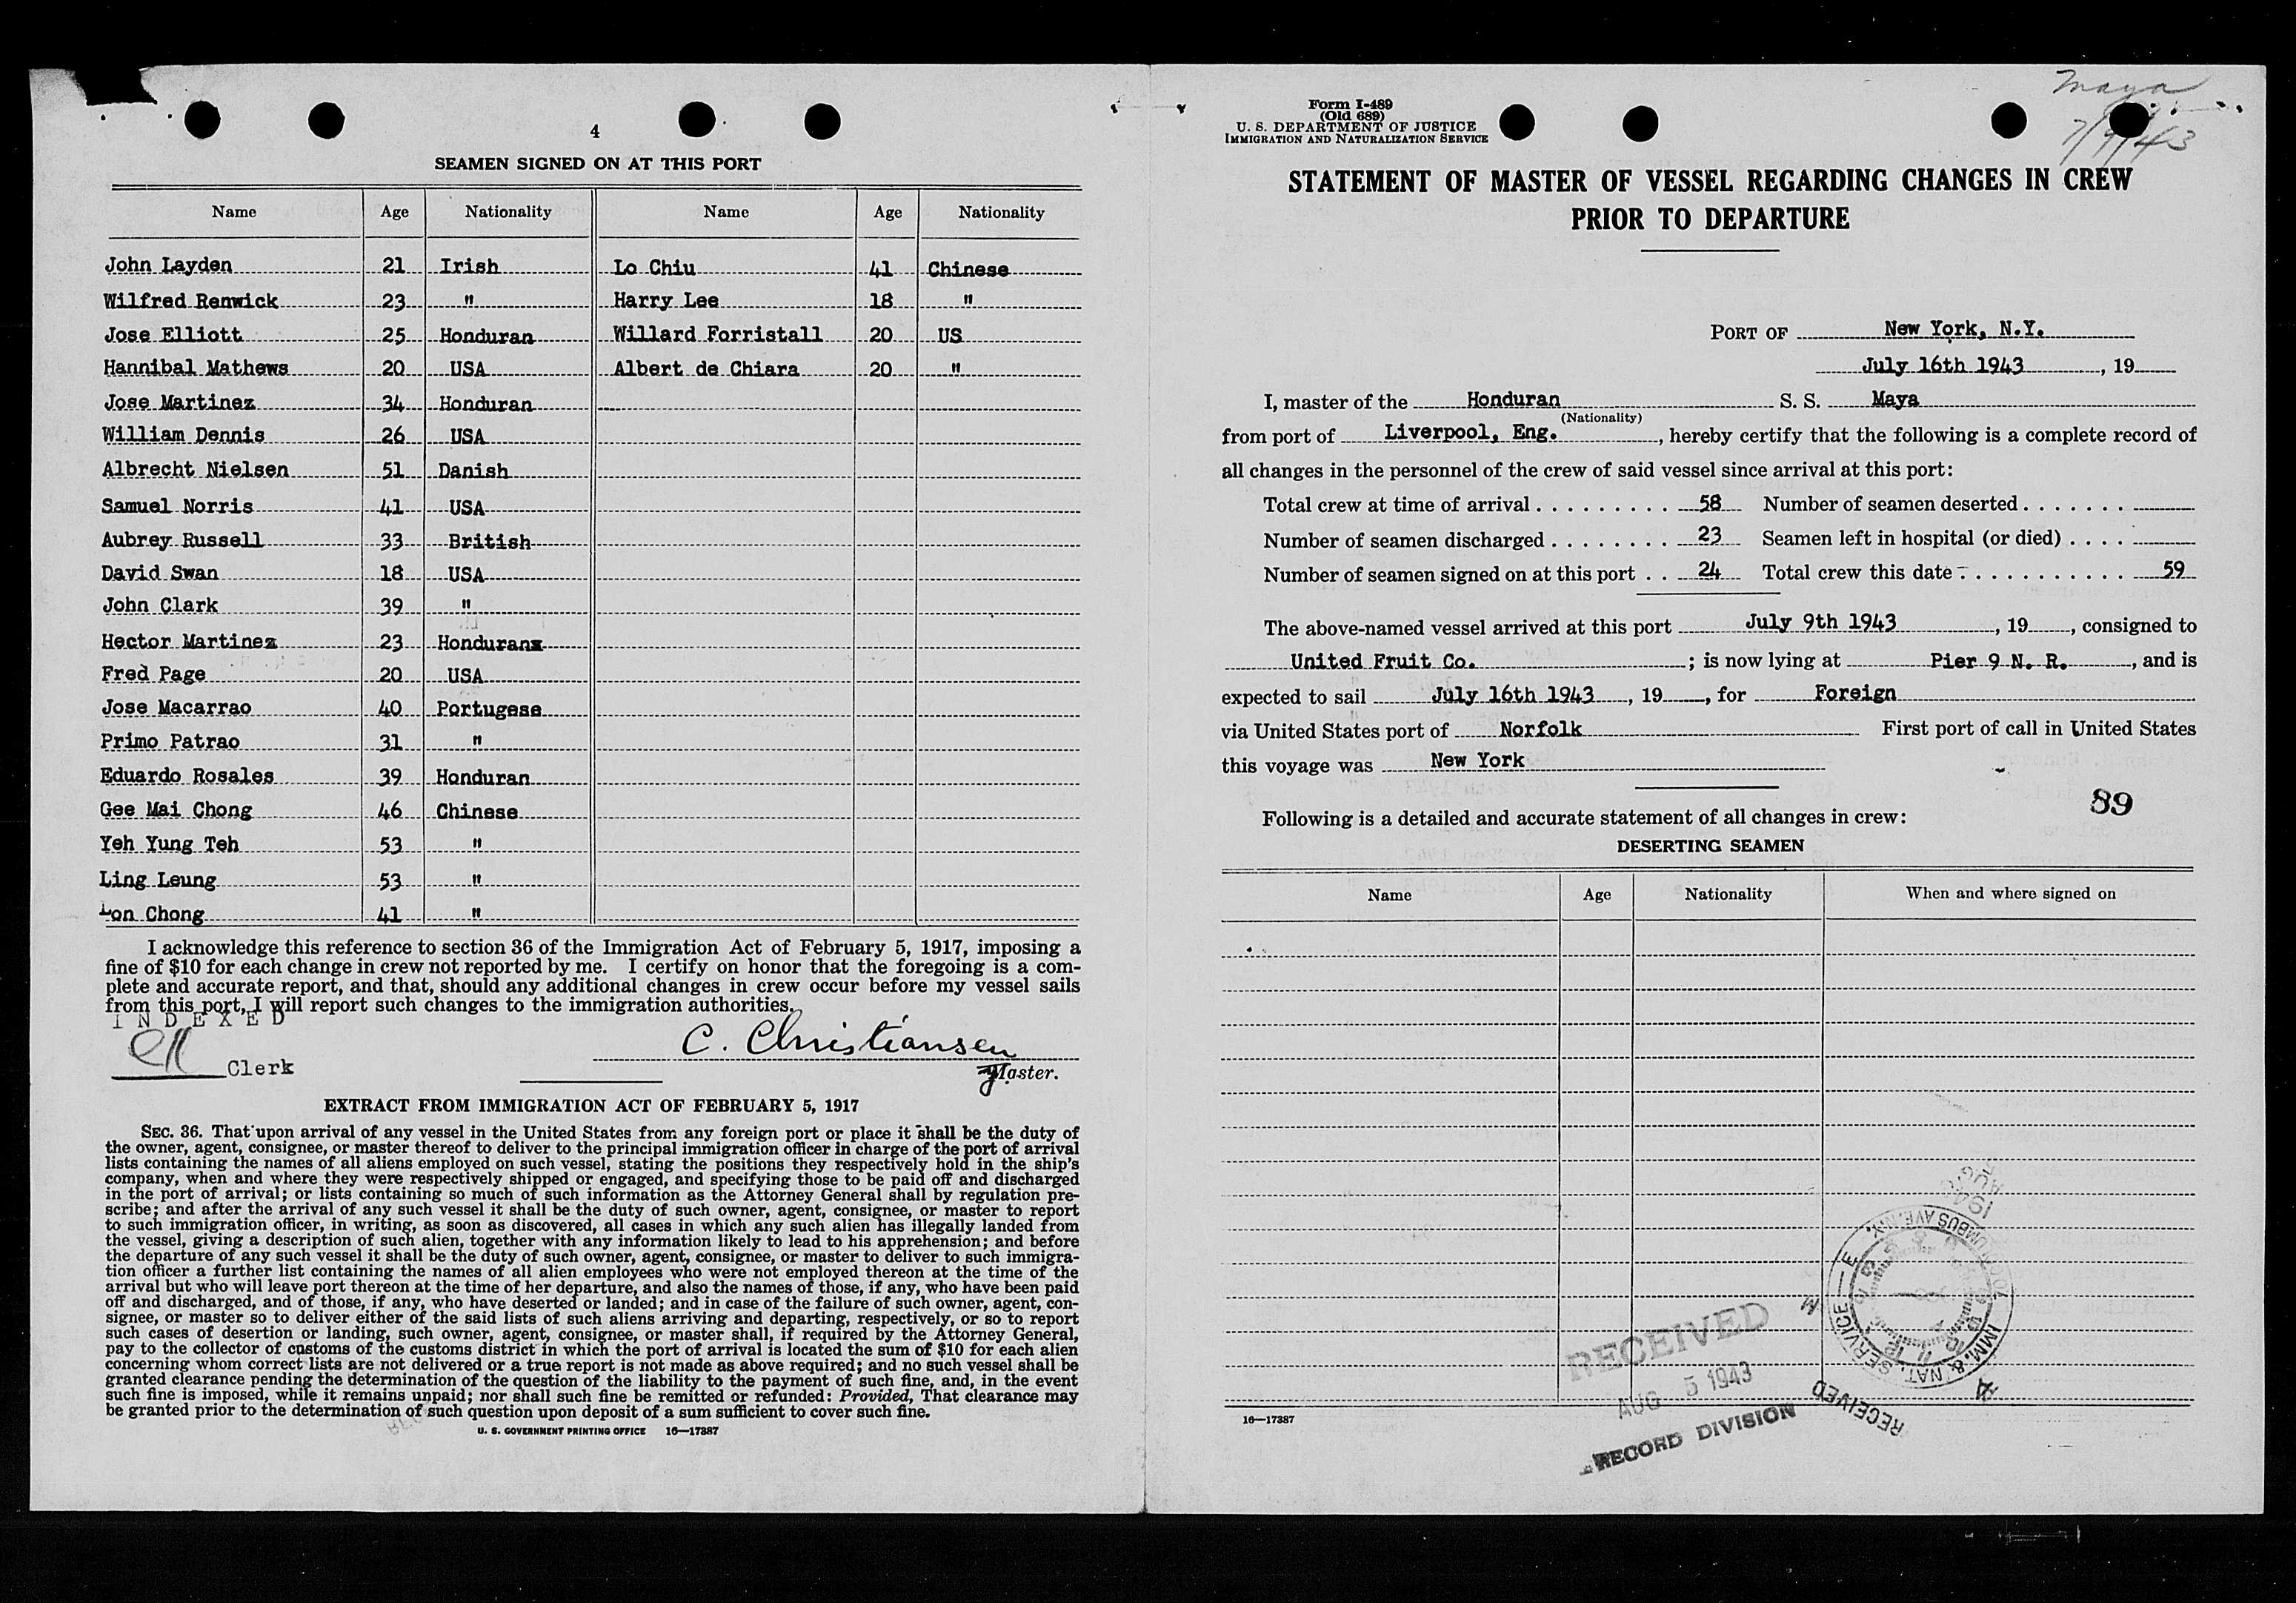 4
SEAMEN SIGNED ON AT THIS PORT
Name Age Nationality Name Age Nationality
John Layden 21 Irish Lo Chiu 41 Chinese
Wilfred Renwick 23 " Harry Lee 18 "
Jose Elliott 25 Honduran Willard Forristall 20 US
Hannibal Mathews 20 USA Albert de Chiara 20 "
Jose Martinez 34 Honduran
William Dennis 26 USA
Albrecht Nielsen 51 Danish
Samuel Norris 41 USA
Aubrey Russell 33 British
David Swan 18 USA
John Clark 39 "
Hector Martinez 23 Honduranx
Fred Page 20 USA
Jose Macarrao 40 Portugese
Primo Patrao 31 "
Eduardo Rosales 39 Honduran
Gee Mai Chong 46 Chinese
Yeh Yung Teh 53 "
Ling Leung 53 "
Lon Chong 41 "
I acknowledge this reference to section 36 of the Immigration Act of February 5, 1917, imposing a
fine of $10 for each change in crew not reported by me. I certify on honor that the foregoing is a com-
plete and accurate report, and that, should any additional changes in crew occur before my vessel sails
from this port, I will report such changes to the immigration authorities.
INDEXED
C. Christiansen
Clerk
Master.
EXTRACT FROM IMMIGRATION ACT OF FEBRUARY 5, 1917
SEC. 36. That upon arrival of any vessel in the United States from any foreign port or place it shall be the duty of
the owner, agent, consignee, or master thereof to deliver to the principal immigration officer in charge of the port of arrival
lists containing the names of all aliens employed on such vessel, stating the positions they respectively hold in the ship's
company, when and where they were respectively shipped or engaged, and specifying those to be paid off and discharged
in the port of arrival; or lists containing so much of such information as the Attorney General shall by regulation pre-
scribe; and after the arrival of any such vessel it shall be the duty of such owner, agent, consignee, or master to report
to such immigration officer, in writing, as soon as discovered, all cases in which any such alien has illegally landed from
the vessel, giving a description of such alien, together with any information likely to lead to his apprehension; and before
the departure of any such vessel it shall be the duty of such owner, agent, consignee, or master to deliver to such immigra-
tion officer a further list containing the names of all alien employees who were not employed thereon at the time of the
arrival but who will leave port thereon at the time of her departure, and also the names of those, if any, who have been paid
off and discharged, and of those, if any, who have deserted or landed; and in case of the failure of such owner, agent, con-
signee, or master so to deliver either of the said lists of such aliens arriving and departing, respectively, or so to report
such cases of desertion or landing, such owner, agent, consignee, or master shall, if required by the Attorney General,
pay to the collector of customs of the customs district in which the port of arrival is located the sum of $10 for each alien
concerning whom correct lists are not delivered or a true report is not made as above required; and no such vessel shall be
granted clearance pending the determination of the question of the liability to the payment of such fine, and, in the event
such fine is imposed, while it remains unpaid; nor shall such fine be remitted or refunded: Provided, That clearance may
be granted prior to the determination of such question upon deposit of a sum sufficient to cover such fine.
U. S. GOVERNMENT PRINTING OFFICE 16—17387
Maya
7/9/43
Form I-489
(Old 689)
U. S. DEPARTMENT OF JUSTICE
IMMIGRATION AND NATURALIZATION SERVICE
STATEMENT OF MASTER OF VESSEL REGARDING CHANGES IN CREW
PRIOR TO DEPARTURE
PORT OF New York, N.Y.
July 16th 1943, 19
I, master of the Honduran S. S. Maya
(Nationality)
from port of Liverpool, Eng., hereby certify that the following is a complete record of
all changes in the personnel of the crew of said vessel since arrival at this port:
Total crew at time of arrival 58 Number of seamen deserted
Number of seamen discharged 23 Seamen left in hospital (or died)
Number of seamen signed on at this port 24 Total crew this date 59
The above-named vessel arrived at this port July 9th 1943, 19, consigned to
United Fruit Co.; is now lying at Pier 9 N. R., and is
expected to sail July 16th 1943, 19, for Foreign
via United States port of Norfolk First port of call in United States
this voyage was New York
89
Following is a detailed and accurate statement of all changes in crew:
DESERTING SEAMEN
Name Age Nationality When and where signed on
RECEIVED
AUG 5 1943
RECORD DIVISION
IMM. & NAT. SERVICE
COLUMBUS AVE. N.Y.
RECEIVED
16—17387